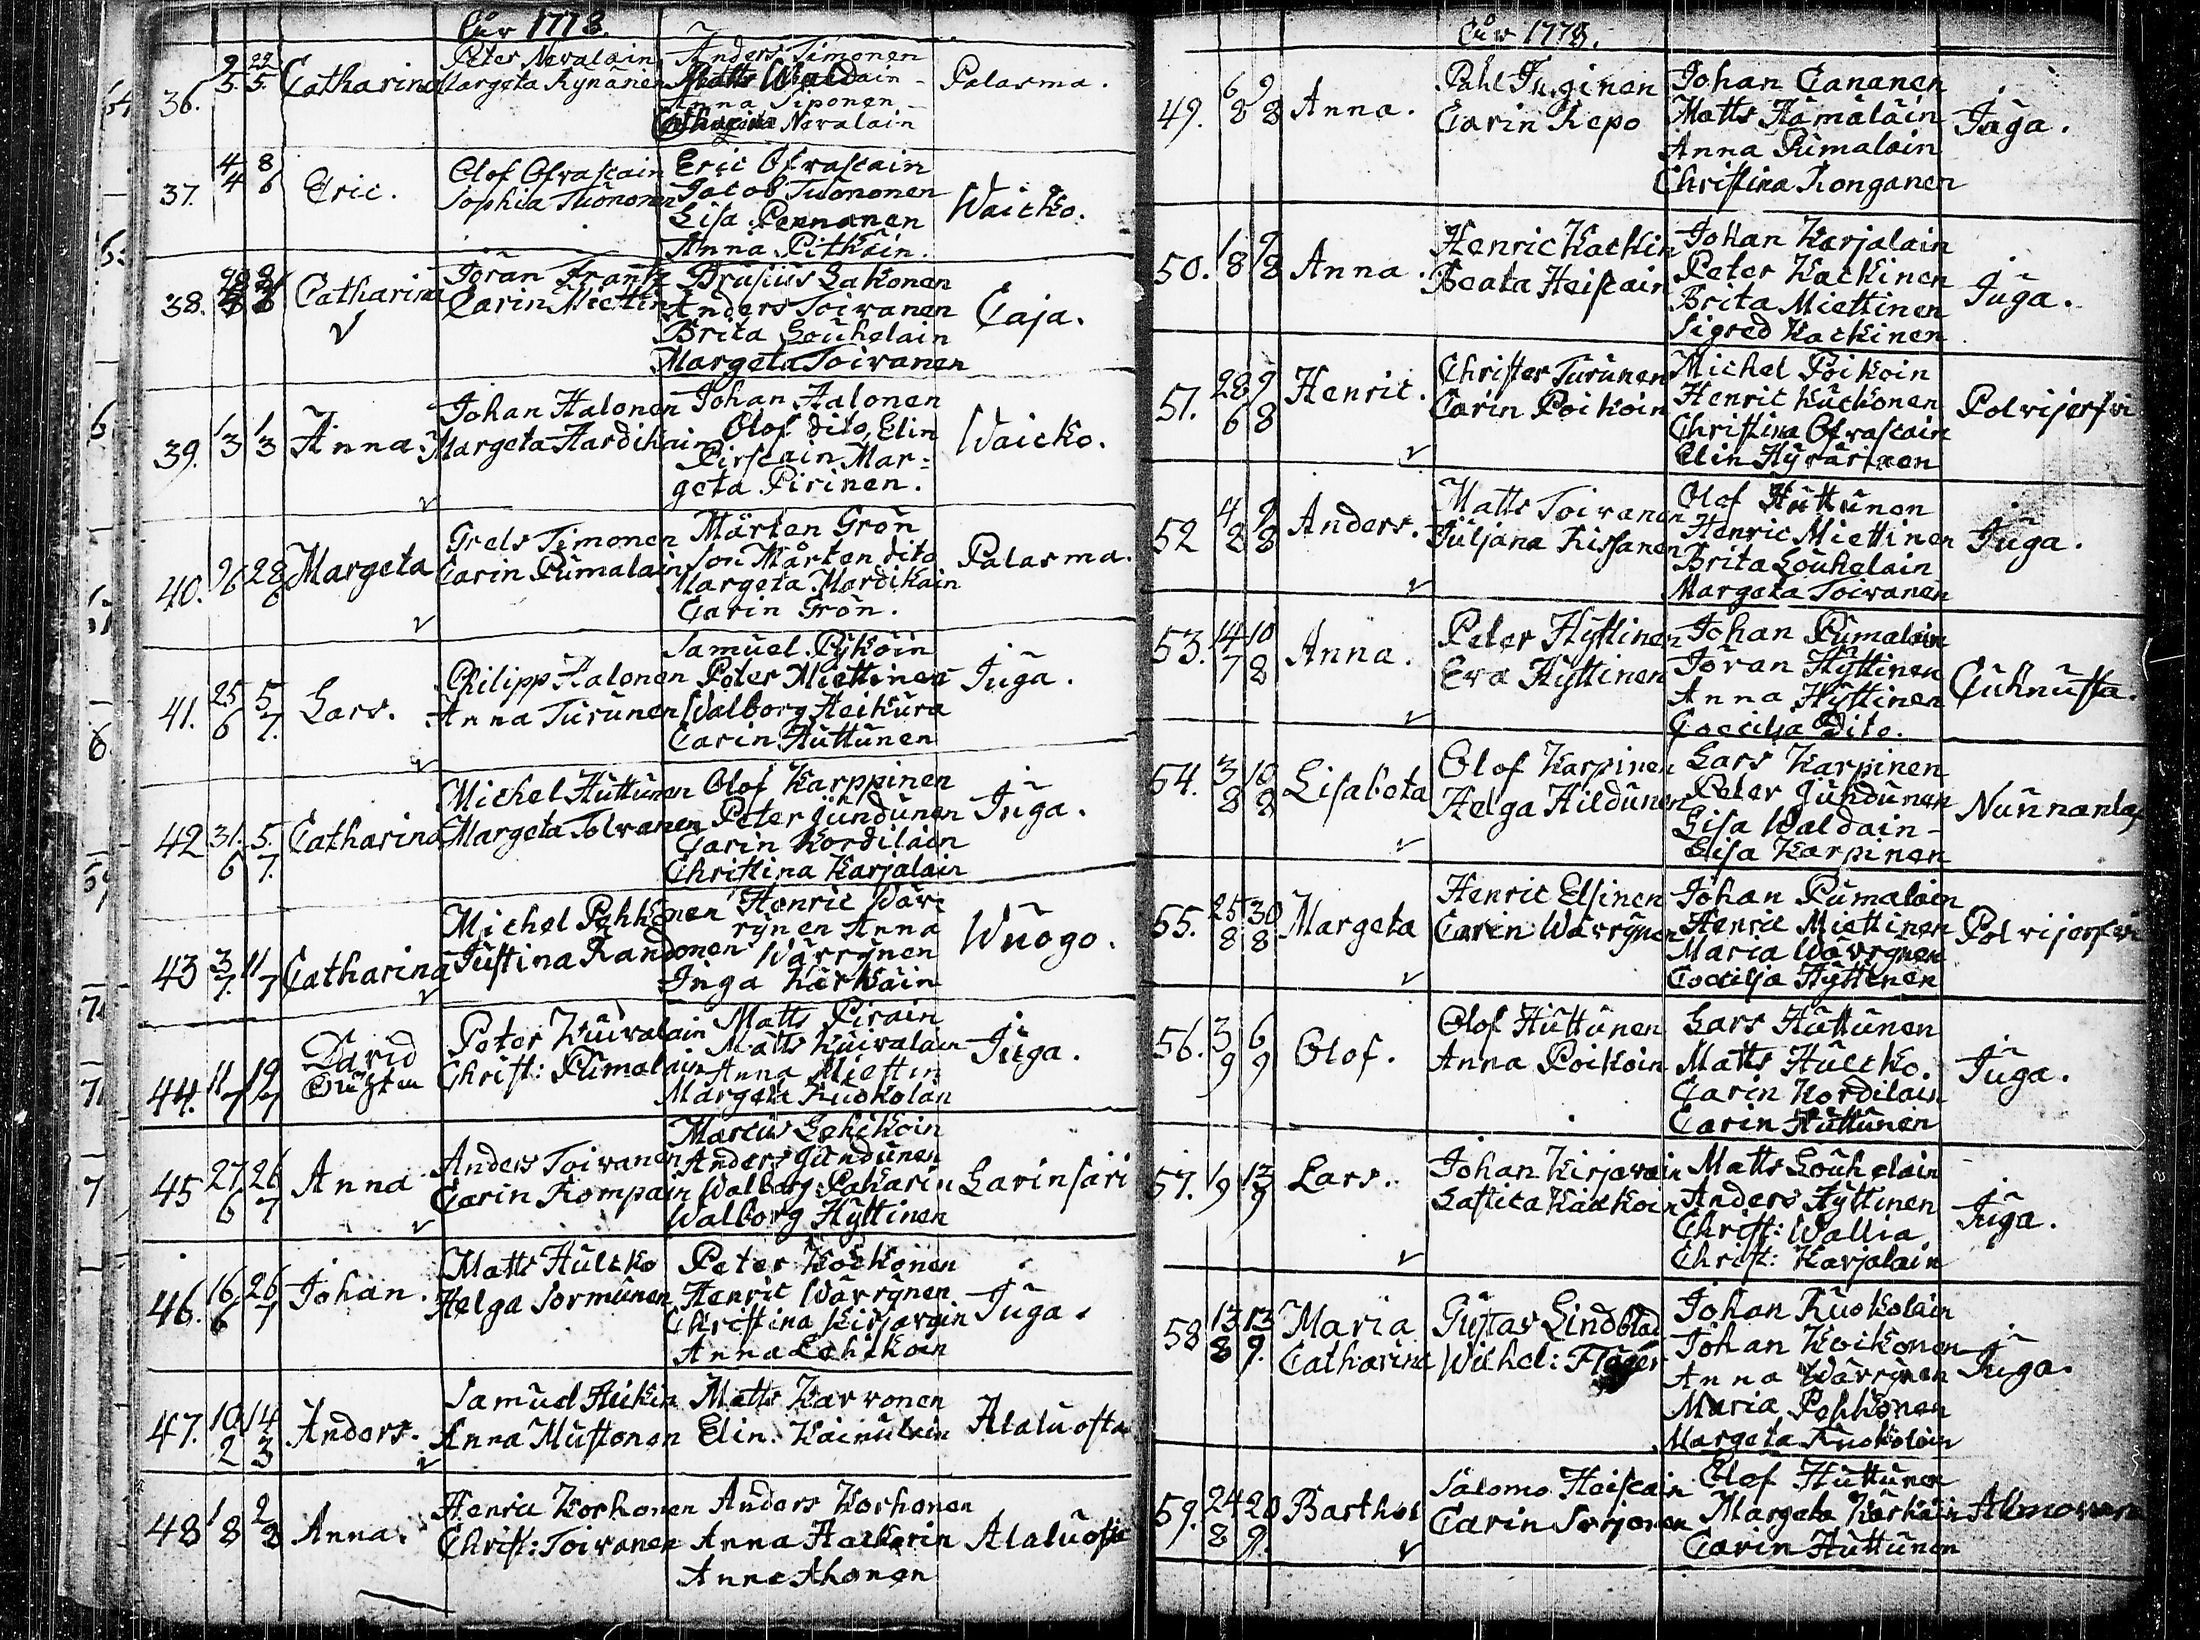 År 1778.
36. 9/5. 22/5. Catharina Peter Nevalain Margeta Rynänen Anders Timonen
Anna Siponen
Catharina Nevalain
Palasma.
37. 4/4 8/6 Eric. Olof Ofvascain Sophia Tuononen
Eric Ofvascain
Jacob Tuononen
Lisa Pennanen
Anna Pitkäin.
Waicko.
38. Catharina Jöran Frantz Carin Miettin
Brusius Lakonen
Anders Toivanen
Brita Louhelain
Margeta Toivanen
Caja.
39. 1/3 1/3 Anna. Johan Halonen Margeta Hardikain
Johan Halonen
Olof dito, Elin
Pirscain Mar=
geta Pirinen.
Waicko.
40. 9/6 28/6 Margeta Grels Timonen Carin Pümalain
Märten Grön
Son Mårten dito
Margeta Mardikain
Carin Grön.
Palasma.
41. 25/6 5/7. Lars. Philipp Halonen Anna Turunen
Samuel Pyköin
Peter Miettinen
Walborg Heikura
Carin Huttunen
Juga.
42 31./6 5./7. Catharina Michel Huttunen Margeta Tolvanen
Olof Karppinen
Peter Jundunen
Carin Kordilain
Christina Karjalain
Juga.
43 3/7. 11/7 Catharina Michel Pehkonen Justina Randonen
Henric Wär-
rynen Anna
Wärrynen
Inga Kärkäin
Wuogo.
44. 11/7 19/7 David Peter Kuivalain Christ: Pümalain
Matts Pirain
Matts Kuivalain
Anna Miettin
Margeta Ruokolan
Juga.
45 27/6 26/7 Anna Anders Toivanen Carin Kompain
Marcus Lehikoin
Anders Jundunen
Walborg Pakarin
Walborg Hyttinen
Larinsari
46. 16/6 26/7 Johan. Matts Hultko Helga Sormunen
Peter Kockonen
Henric Wärrynen
Christina Kirjavain
Anna Lehikoin
Juga.
47. 10/2 14/3 Anders. Samuel Heikin Anna Mustonen
Matts Karvonen
Elin. Kainulain
Alaluosta
48 1/8 2/8 Anna. Henric Korhonen Christ: Toivanen
Anders Korhonen
Anna Hackarin
Anna Ahonen
Alaluosta
År 1778.
49. 6/8 9/8 Anna. Påhl Juginen Carin Repo
Johan Cananen
Matts Hämäläin
Anna Pümalain
Christina Ronganen
Juga.
50. 1/8 9/8 Anna. Henric Kackin Beata Heiscain
Johan Karjalain
Peter Kackinen
Brita Miettinen
Sigred Kackinen
Juga.
51. 28/6 9/8 Henric. Christer Turunen Carin Poikoin
Michel Poikoin
Henric Kuckonen
Christina Ofvascain
Elin Hyvärinen
Polvijerfvi
52 4/8 9/8 Anders. Matts Toivanen Juljana Kissanen
Olof Huttunen
Henric Miettinen
Brita Louhelain
Margeta Toivanen
Juga.
53. 14/7 10/8 Anna. Peter Hyttinen Eva Hyttinen
Johan Pümalain
Jöran Hyttinen
Anna Hyttinen
Coecilja Dito.
Cuhnusta.
54. 3/8 10/8 Lisabeta Olof Karpinen Helga Hildunen
Lars Karpinen
Peter Juhdunen
Lisa Waldain-
Elisa Karpinen
Nunnanla
55. 25/8 30/8 Margeta Henric Elsinen Carin Wärrynen
Johan Pümalain
Henric Miettinen
Maria Wärrynen
Coecilja Hyttinen
Polvijerfvi
56. 3/9 6/9 Olof. Olof Huttunen Anna Poikoin
Lars Huttunen
Matts Hultko.
Carin Kordilain
Carin Huttunen
Juga.
57. 1/9 13/9 Lars. Johan Kirjavain
Matts Louhelain
Anders Hyttinen
Christ: Wallia
Christ: Karjalain
Juga.
58 13/8 13/9. Maria Catharina Gustav Lindblad Wilhel:
Johan Ruokolain
Johan Koikonen
Anna Wärrynen
Maria Pehkonen
Margeta Ruokolain
Juga.
59. 24/8 20/9. Barthol Salomo Heiscain Carin Sorjonen
Olof Huttunen
Margeta Kärkäin
Carin Huttunen